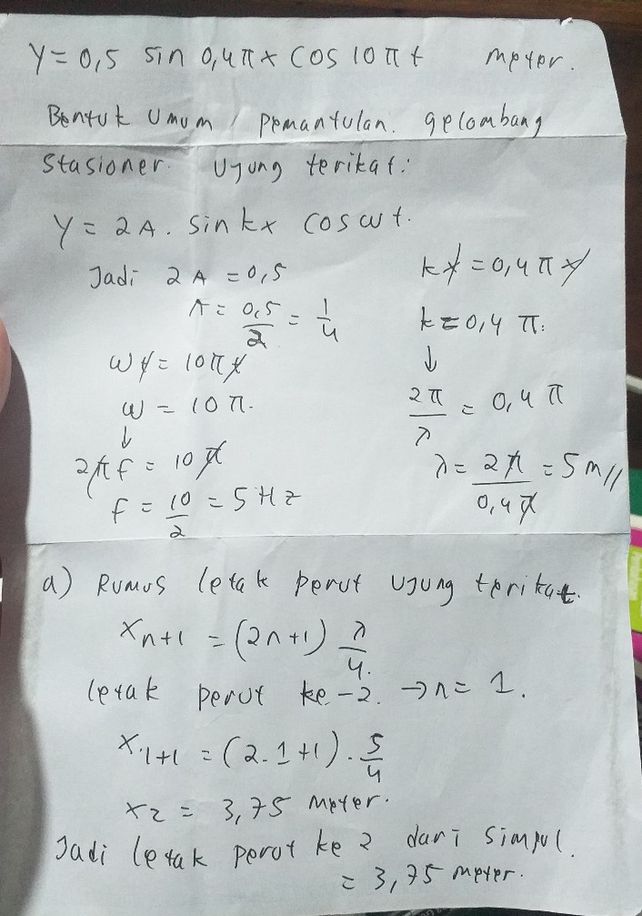 Y = 0,5 sin 0,4πx cos 10πt meter.
Bentuk Umum, pemantulan. gelombang
Stasioner. Ujung terikat:
Y = 2A. sin kx cos ωt.
Jadi 2A = 0,5
A = 0,5/2 = 1/4
ωt = 10πt
ω = 10π.
↓
2πf = 10π
f = 10/2 = 5 Hz
kx = 0,4πx
k = 0,4 π.
↓
2π/λ = 0,4 π
λ = 2π/0,4π = 5 m//
a) Rumus letak perut ujung terikat.
Xn+1 = (2n+1) λ/4.
letak perut ke-2. → n = 1.
X1+1 = (2.1+1) . 5/4
x2 = 3,75 meter.
Jadi letak perut ke 2 dari simpul.
= 3,75 meter.